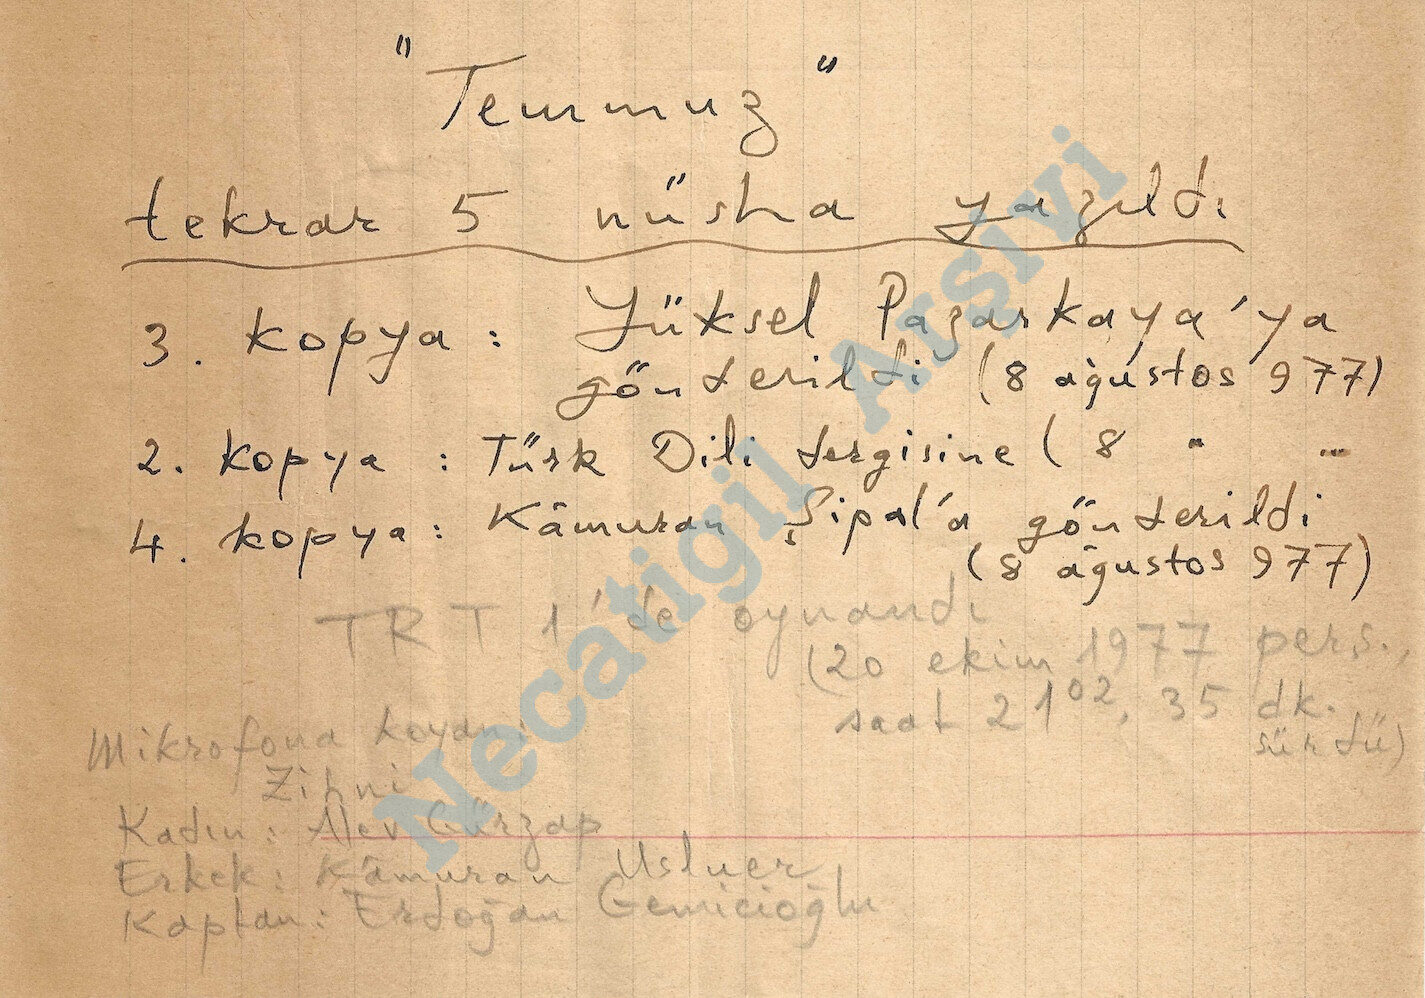 "Temmuz"
tekrar 5 nüsha yazıldı
3. kopya : Yüksel Pazarkaya'ya
gönderildi (8 ağustos 977)
2. kopya : Türk Dili dergisine ( 8 " ...
4. kopya : Kâmuran Şipal'a gönderildi
(8 ağustos 977)
TRT 1'de oynandı
(20 ekim 1977 perş.,
saat 21⁰², 35 dk.
sürdü)
Mikrofona koyan:
Zihni
Kadın: Alev Gürzap
Erkek: Kâmuran Usluer
Kaptan: Erdoğan Gemicioğlu
Necatigil Arşivi